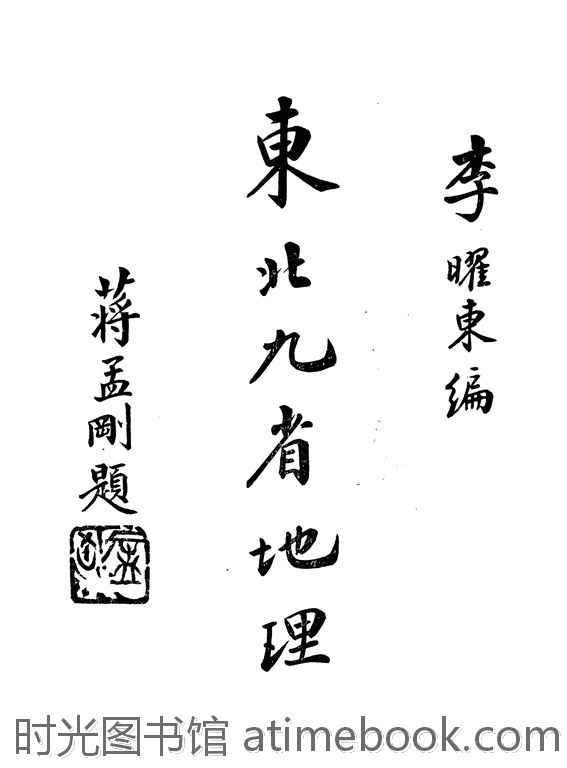 李曜東編
東北九省地理
蔣孟剛題
时光图书馆 atimebook.com